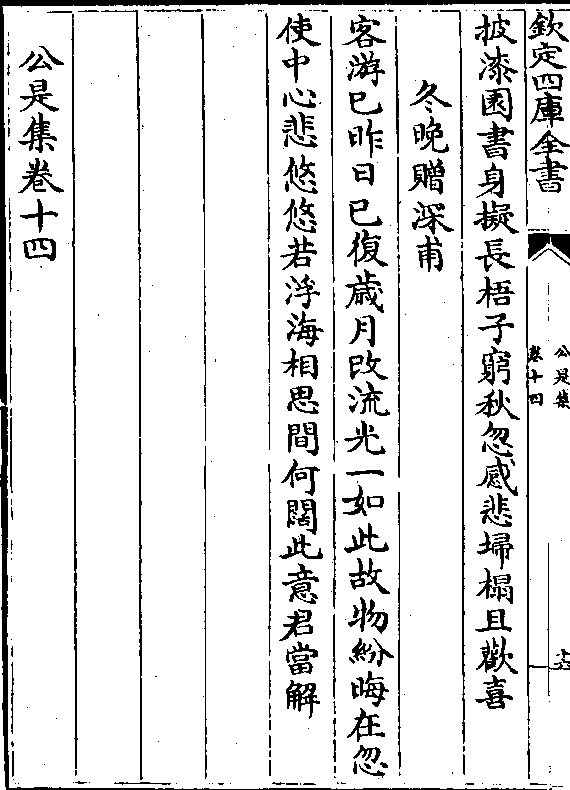 欽定四庫全書
公是集
卷十四
披漆園書身擬長梧子窮秋忽感悲埽榻且歡喜
冬晚贈深甫
客游已昨日已復歳月改流光一如此故物紛晦在忽
使中心悲悠悠若浮海相思間何闊此意君當解
公是集卷十四